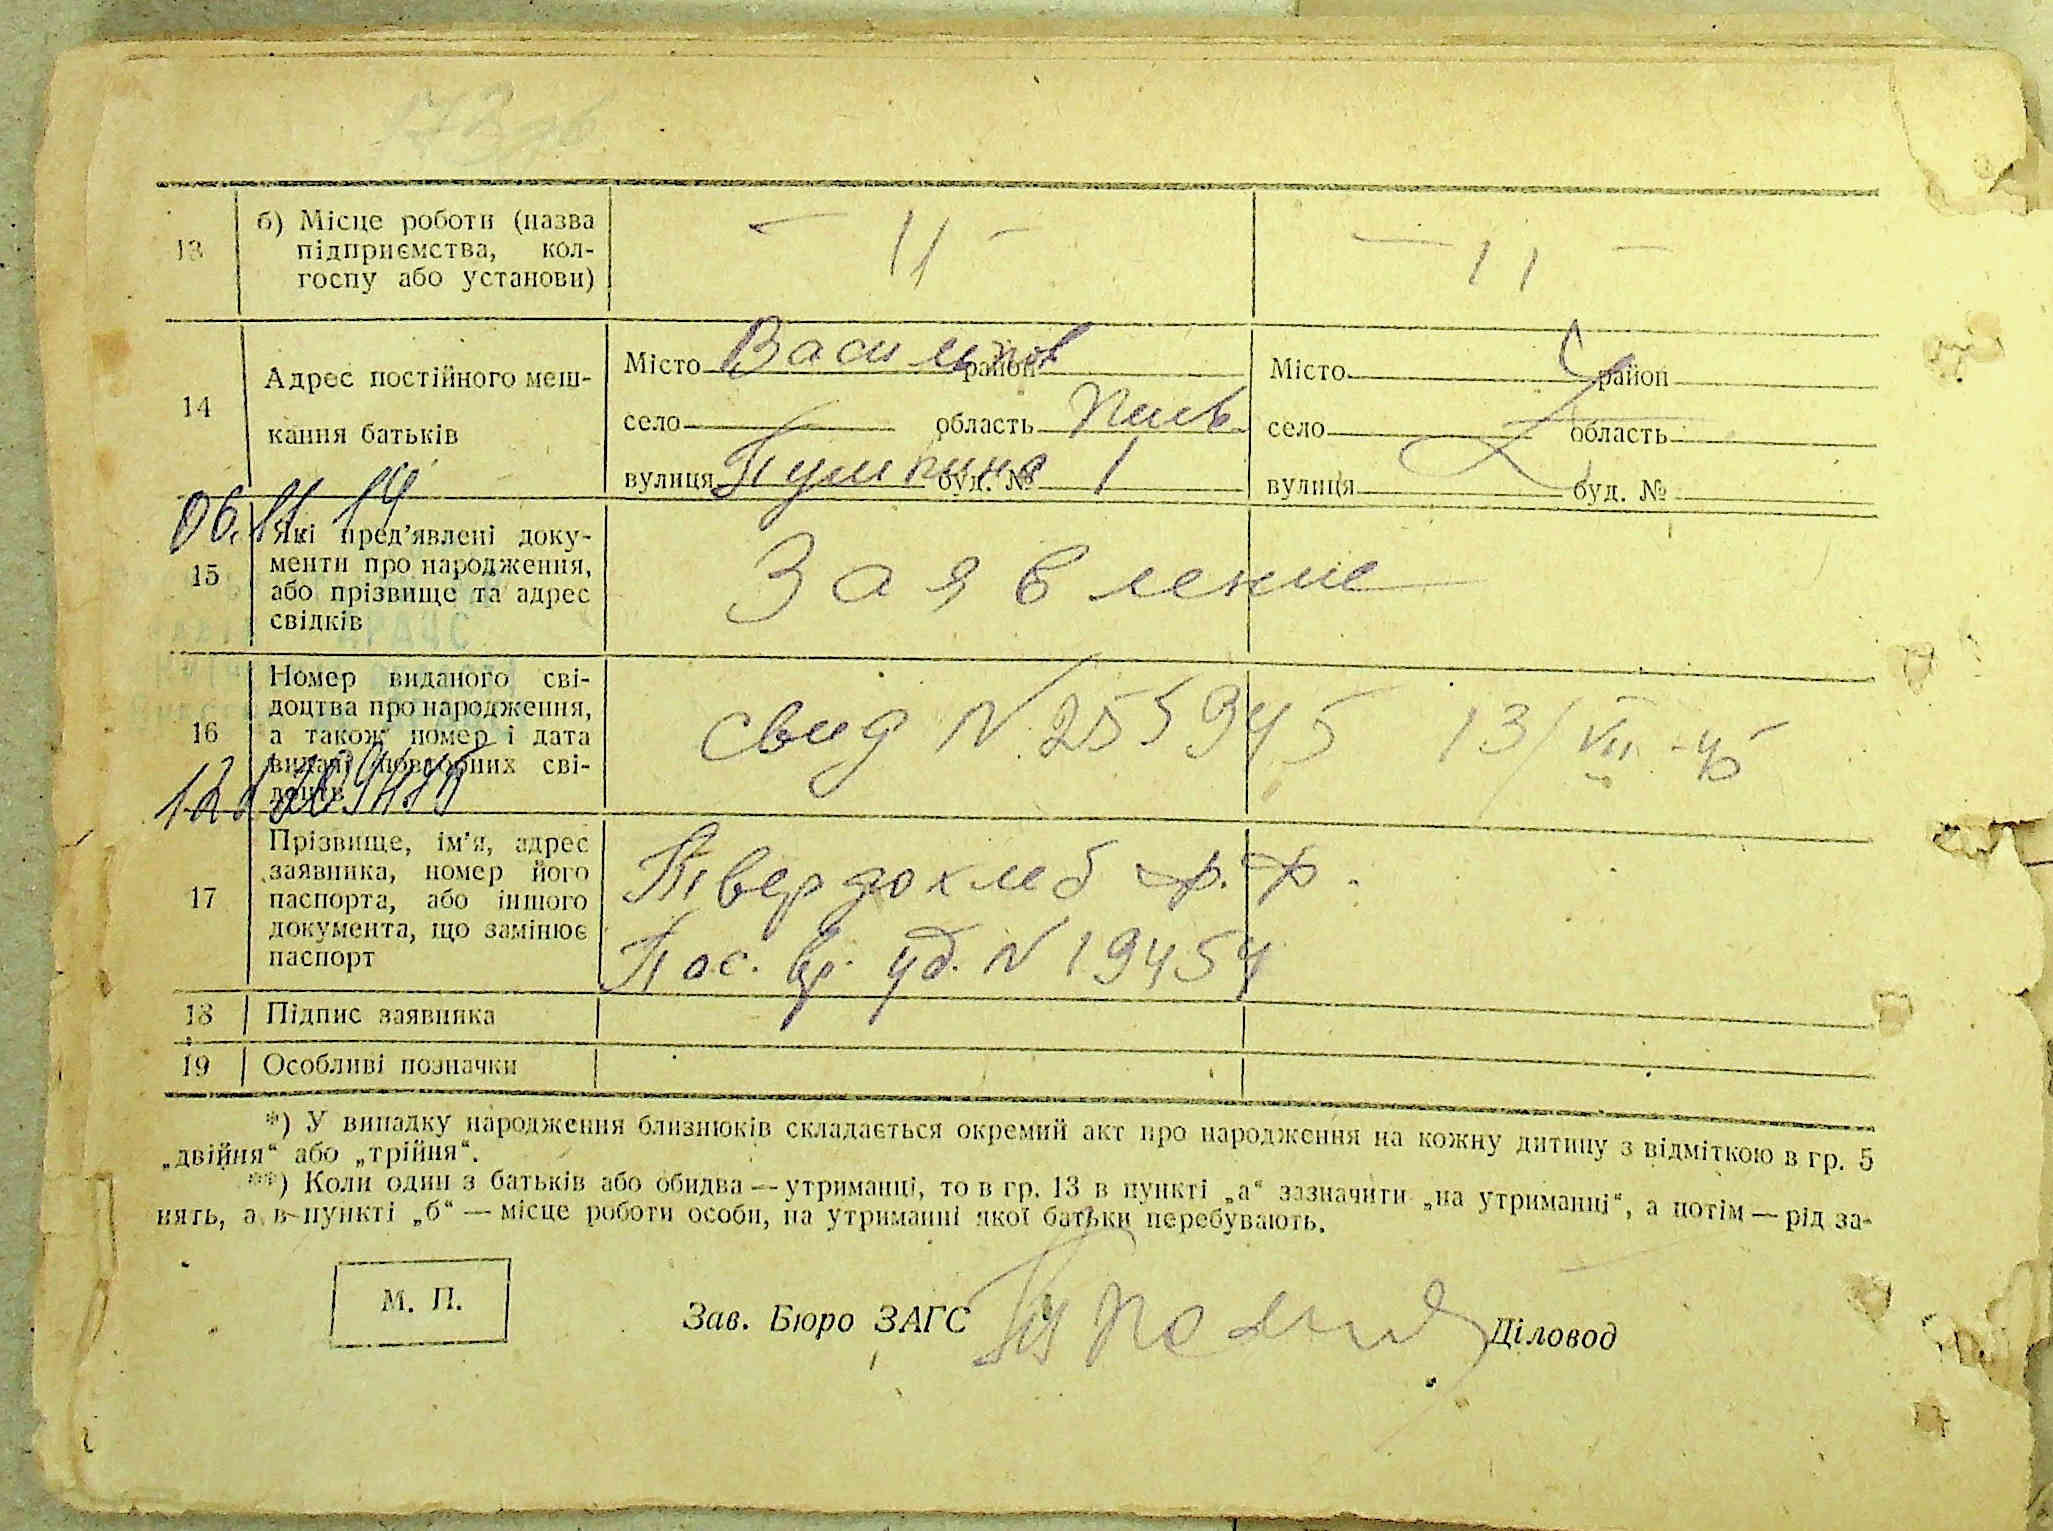 13 б) Місце роботи (назва
підприємства, кол-
госпу або установи)
— 11 —
— 11 —
14 Адрес постійного меш-
кання батьків
Місто Васильков район
село область
вулиця буд. № 1
Місто район
село область
вулиця буд. №
15 Які пред’явлені доку-
менти про народження,
або прізвище та адрес
свідків
Заявление
16 Номер виданого сві-
доцтва про народження,
а також номер і дата
видачі повторних сві-
доцтв
свид N 255945 13/VII-45
17 Прізвище, ім’я, адрес
заявника, номер його
паспорта, або іншого
документа, що замінює
паспорт
Твердохлеб Ф. Ф.
Пос. вр. уд. N 19454
18 Підпис заявника
19 Особливі позначки
*) У випадку народження близнюків складається окремий акт про народження на кожну дитину з відміткою в гр. 5
„двійня“ або „трійня“.
**) Коли один з батьків або обидва — утриманці, то в гр. 13 в пункті „а“ зазначити „на утриманні“, а потім — рід за-
нять, а в пункті „б“ — місце роботи особи, на утриманні якої батьки перебувають.
М. П.
Зав. Бюро ЗАГС
Діловод